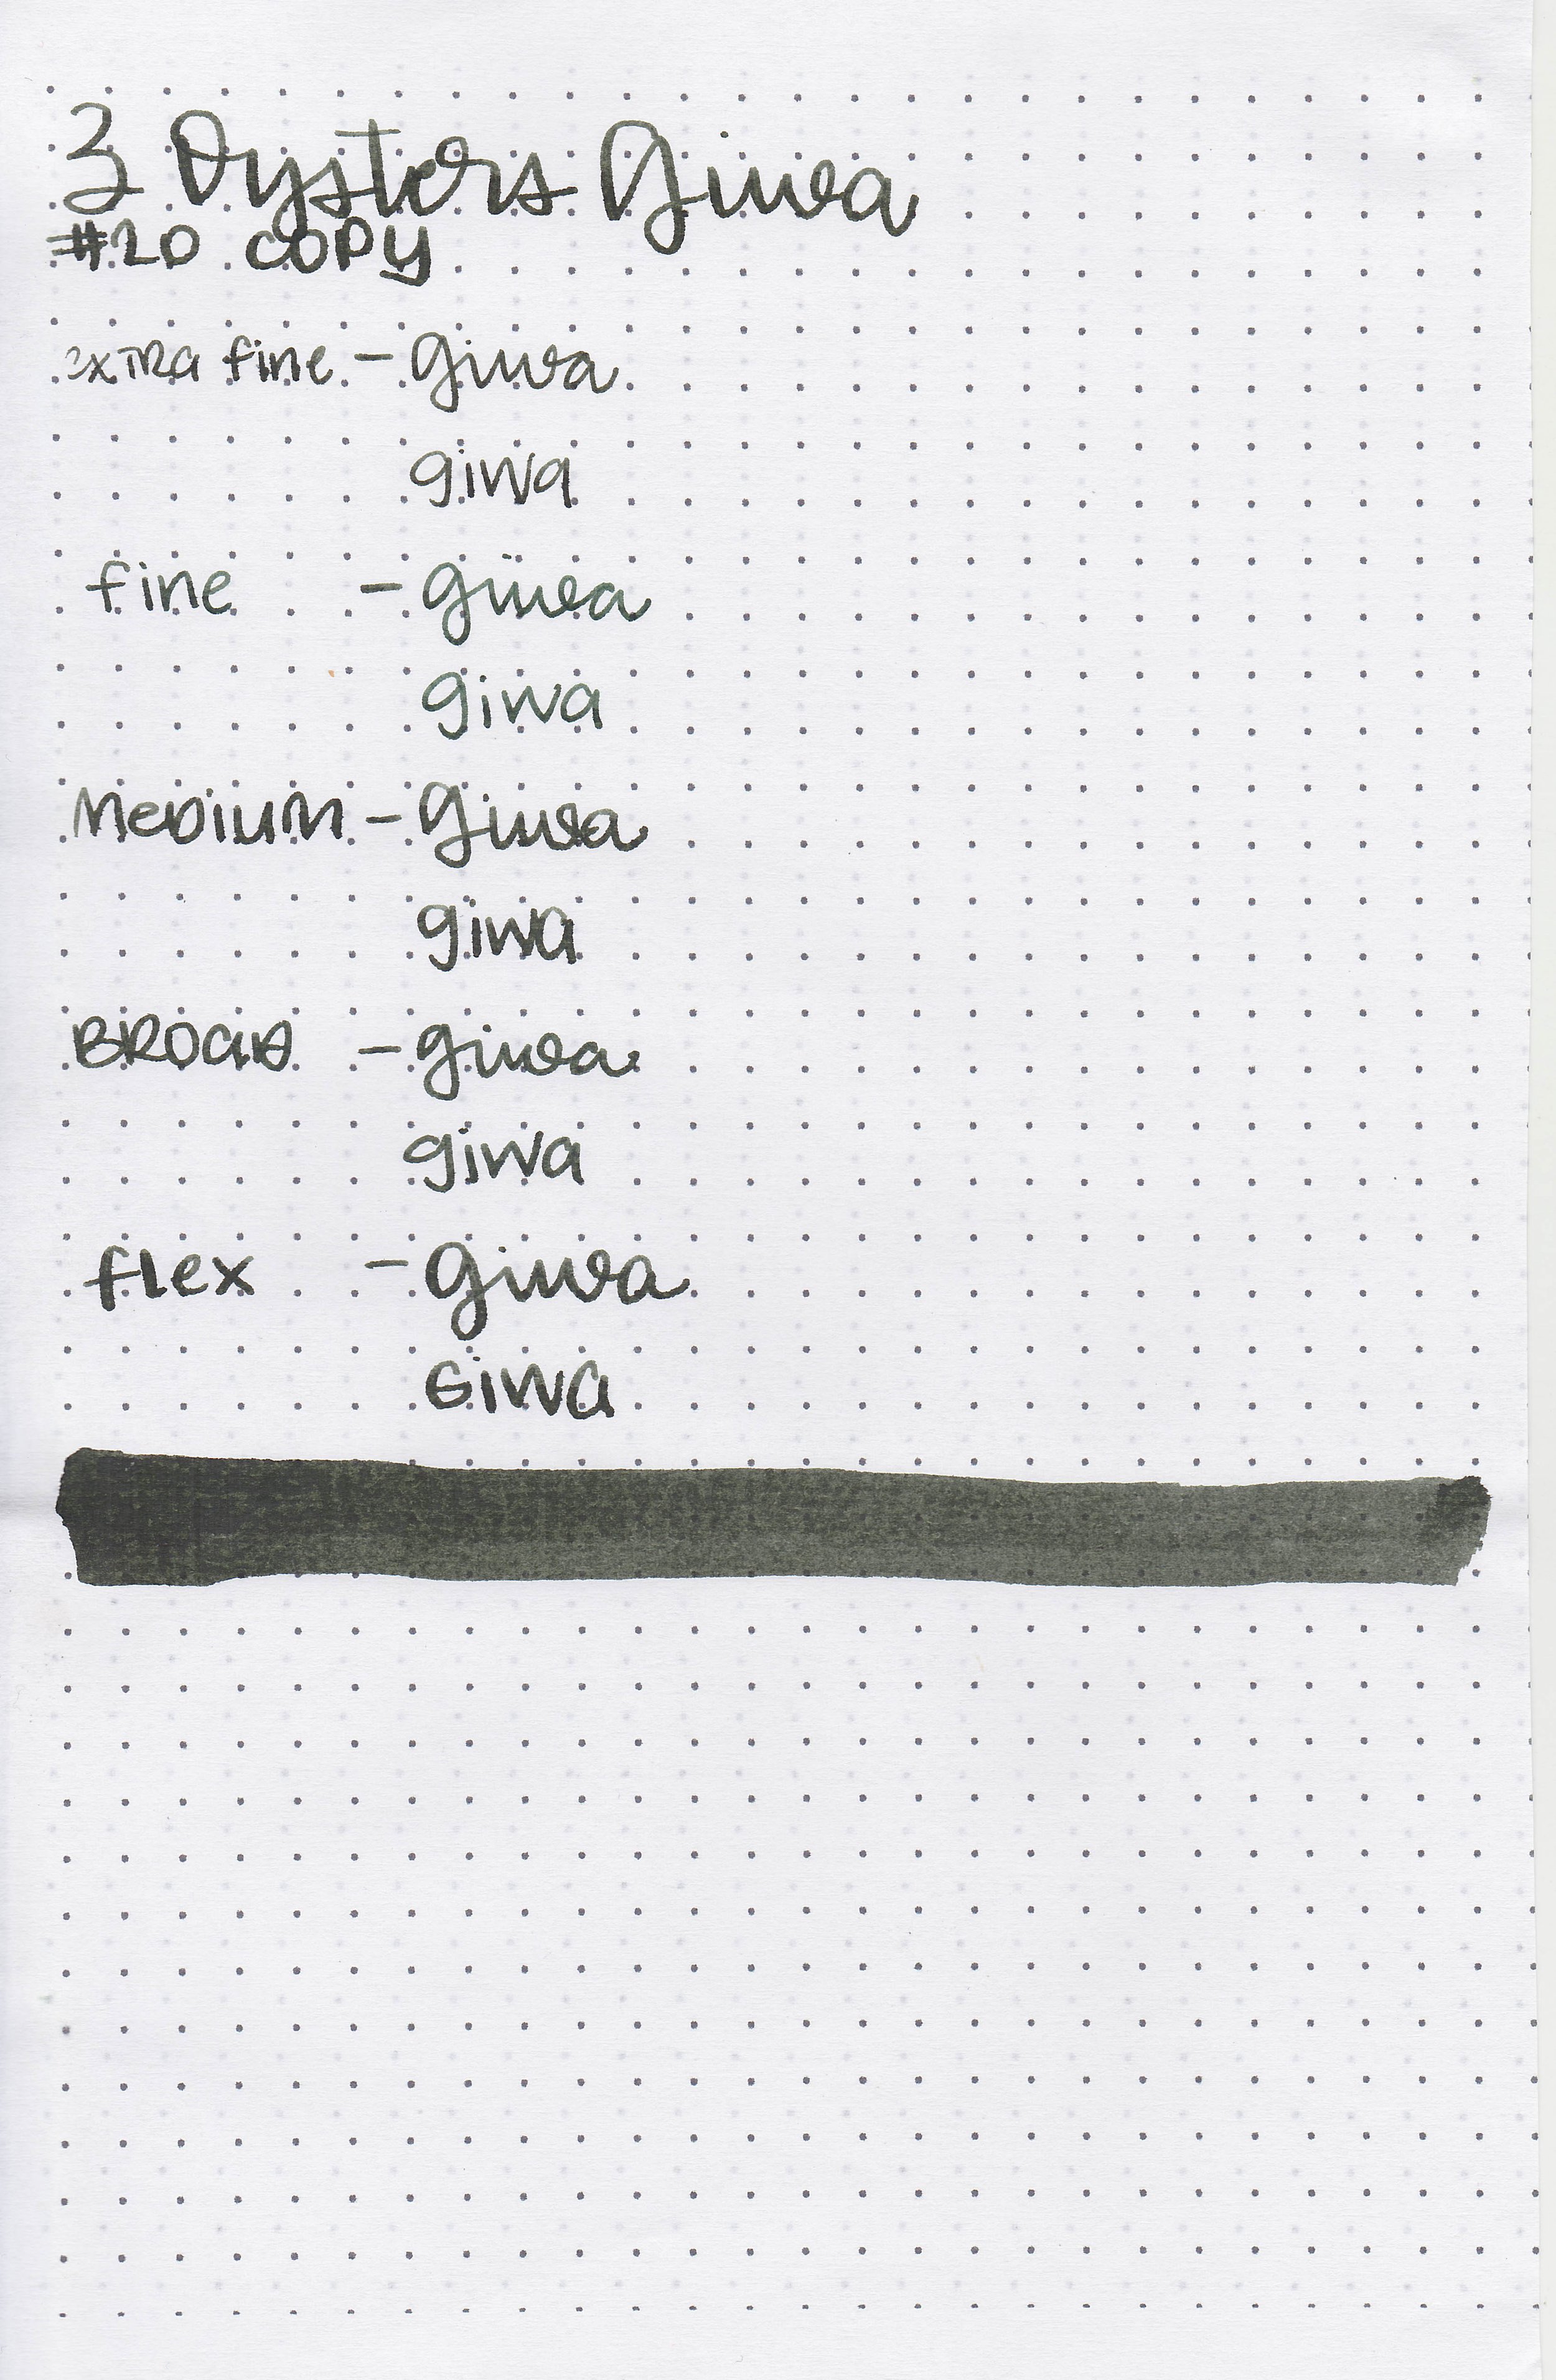 3 Oysters Giwa
#20 COPY
extra fine - giwa
giwa
fine - giwa
giwa
Medium - Giwa
giwa
BROAD - giwa
giwa
flex - giwa
Giwa